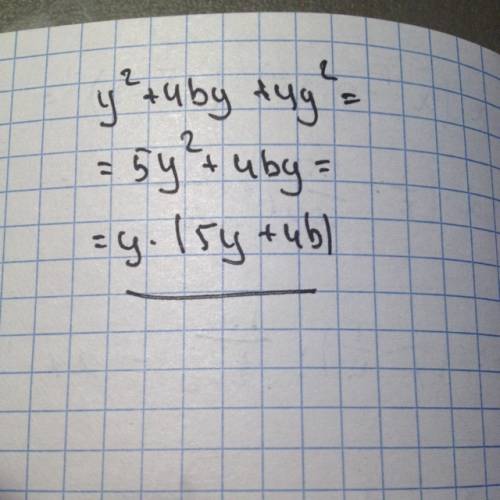 y² + 4by + 4y² =
= 5y² + 4by =
= y · (5y + 4b)